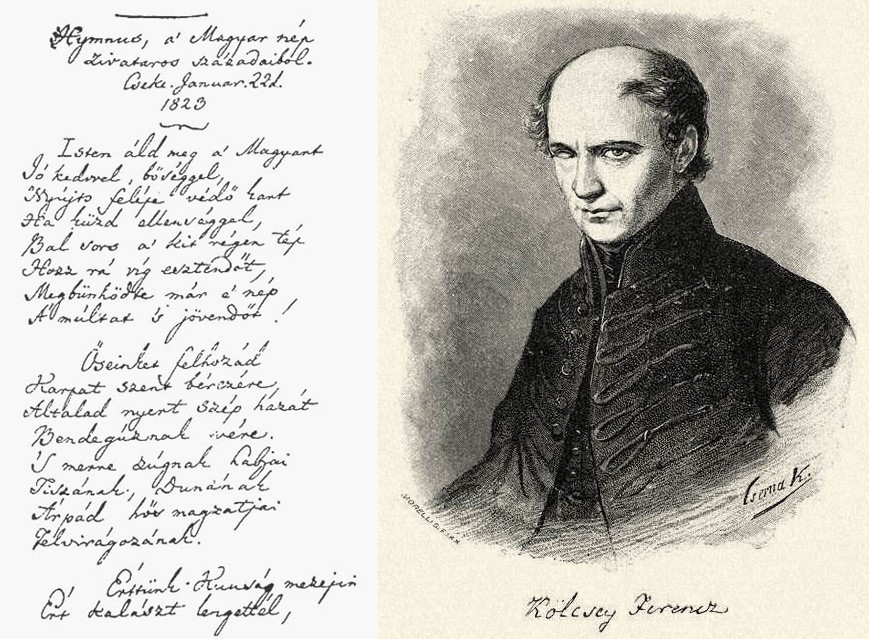 Hymnus, a' Magyar nép
zivataros századaiból.
Cseke. Januar. 22d.
1823
Isten áld meg a' Magyart
Jó kedvvel, bőséggel,
Nyújts feléje védő kart
Ha küzd ellenséggel,
Bal sors a' kit régen tép
Hozz rá víg esztendőt,
Megbünhödte már e' nép
A' múltat 's jövendőt!
Őseinket felhozád
Karpat szent bérczére,
Általad nyert szép hazát
Bendegúznak vére.
'S merre zúgnak habjai
Tiszának, Dunának
Árpád hős magzatjai
Felvirágozának.
Érttünk Kunság mezejin
Ért kalászt lengettél,
Cserna K.
MORELLI G. F.
Kölcsey Ferencz